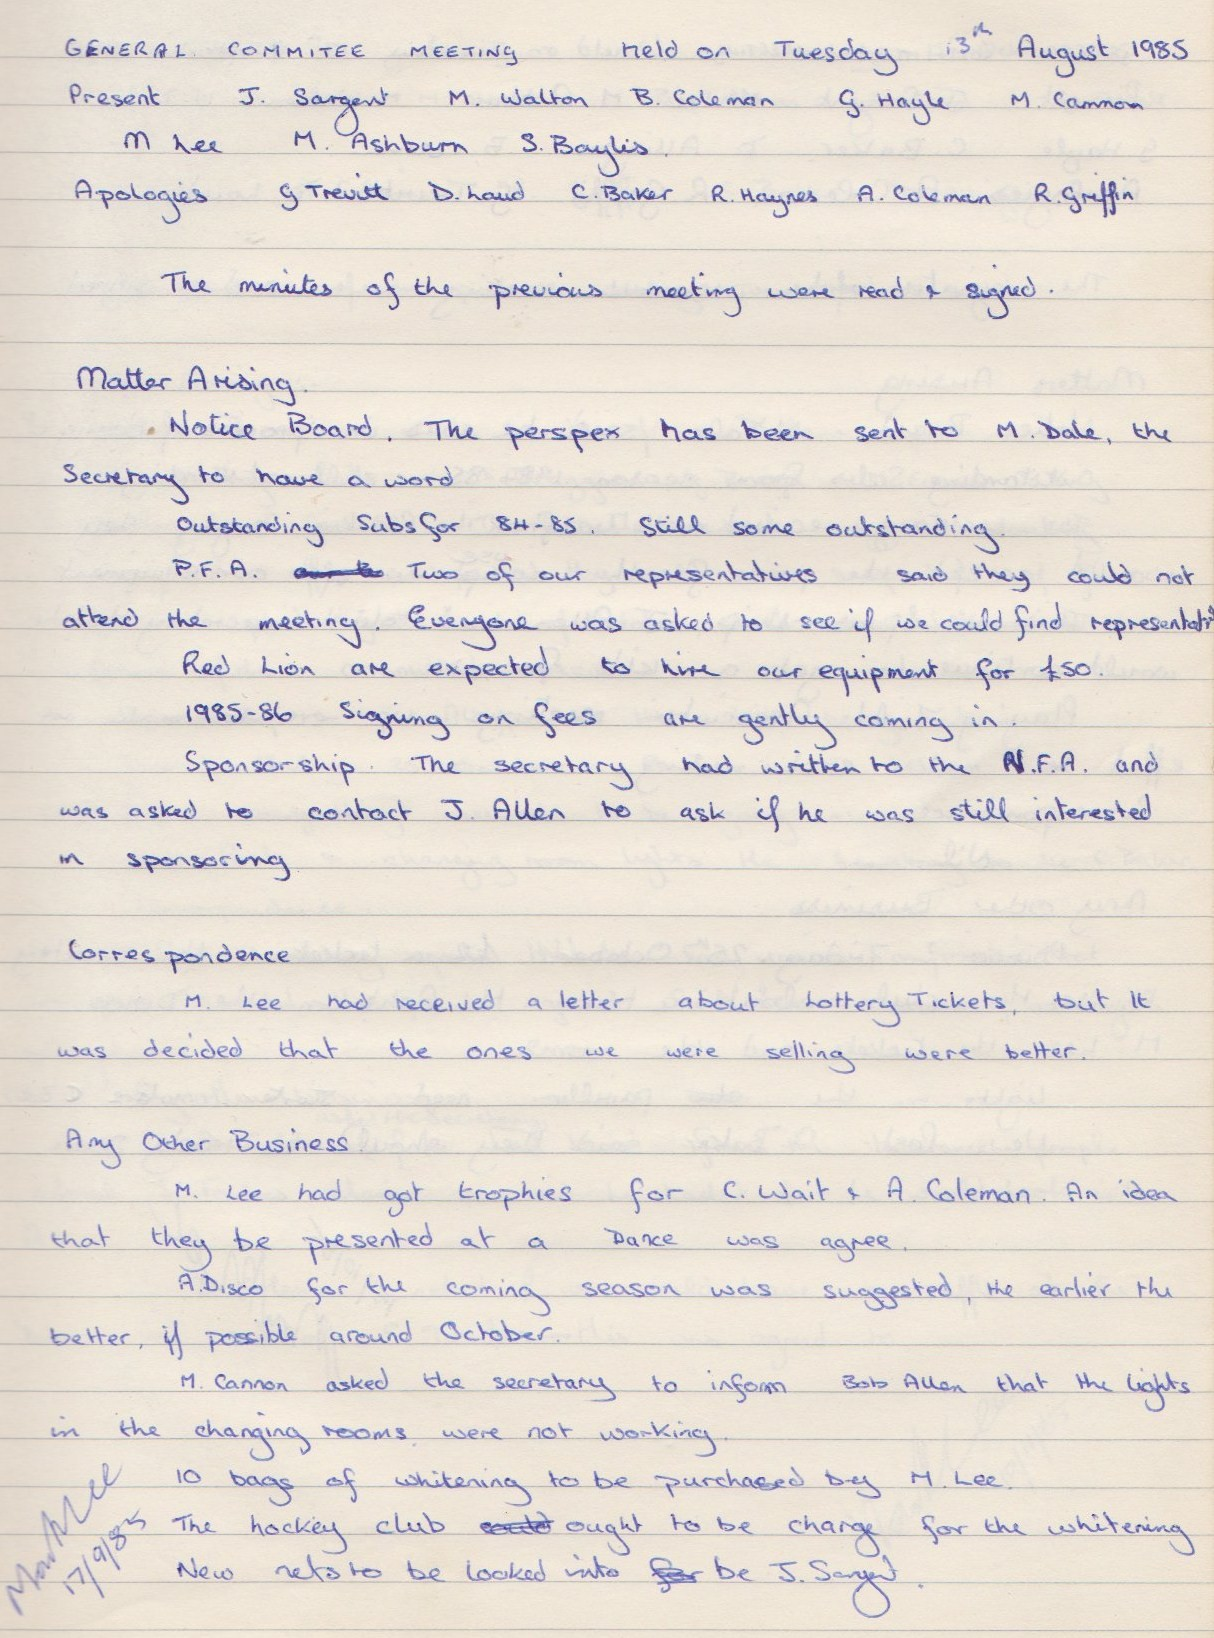 GENERAL COMMITEE MEETING Held on Tuesday 13th August 1985
Present J. Sargent M. Walton B. Coleman G. Hayle M. Cannon
M Lee M. Ashburn S. Baylis.
Apologies G Trevitt D. Laud C. Baker R. Haynes A. Coleman R. Griffin
The minutes of the previous meeting were read & signed.
Matter Arising.
Notice Board. The perspex has been sent to M. Dale, the
Secretary to have a word
Outstanding Subs for 84-85. Still some outstanding.
P.F.A. Two of our representatives said they could not
attend the meeting. Everyone was asked to see if we could find representativ
Red Lion are expected to hire our equipment for £50.
1985-86 Signing on fees are gently coming in.
Sponsorship. The secretary had written to the N.F.A. and
was asked to contact J. Allen to ask if he was still interested
in sponsoring
Correspondence
M. Lee had received a letter about Lottery Tickets, but It
was decided that the ones we were selling were better.
Any Other Business.
M. Lee had got trophies for C. Wait & A. Coleman. An idea
that they be presented at a Dance was agree.
A. Disco for the coming season was suggested, the earlier the
better, if possible around October.
M. Cannon asked the secretary to inform Bob Allen that the lights
in the changing rooms were not working.
10 bags of whitening to be purchased by M. Lee.
The hockey club could ought to be charge for the whitening
New nets to be looked into for be J. Sargent.
Mark Lee
17/9/85